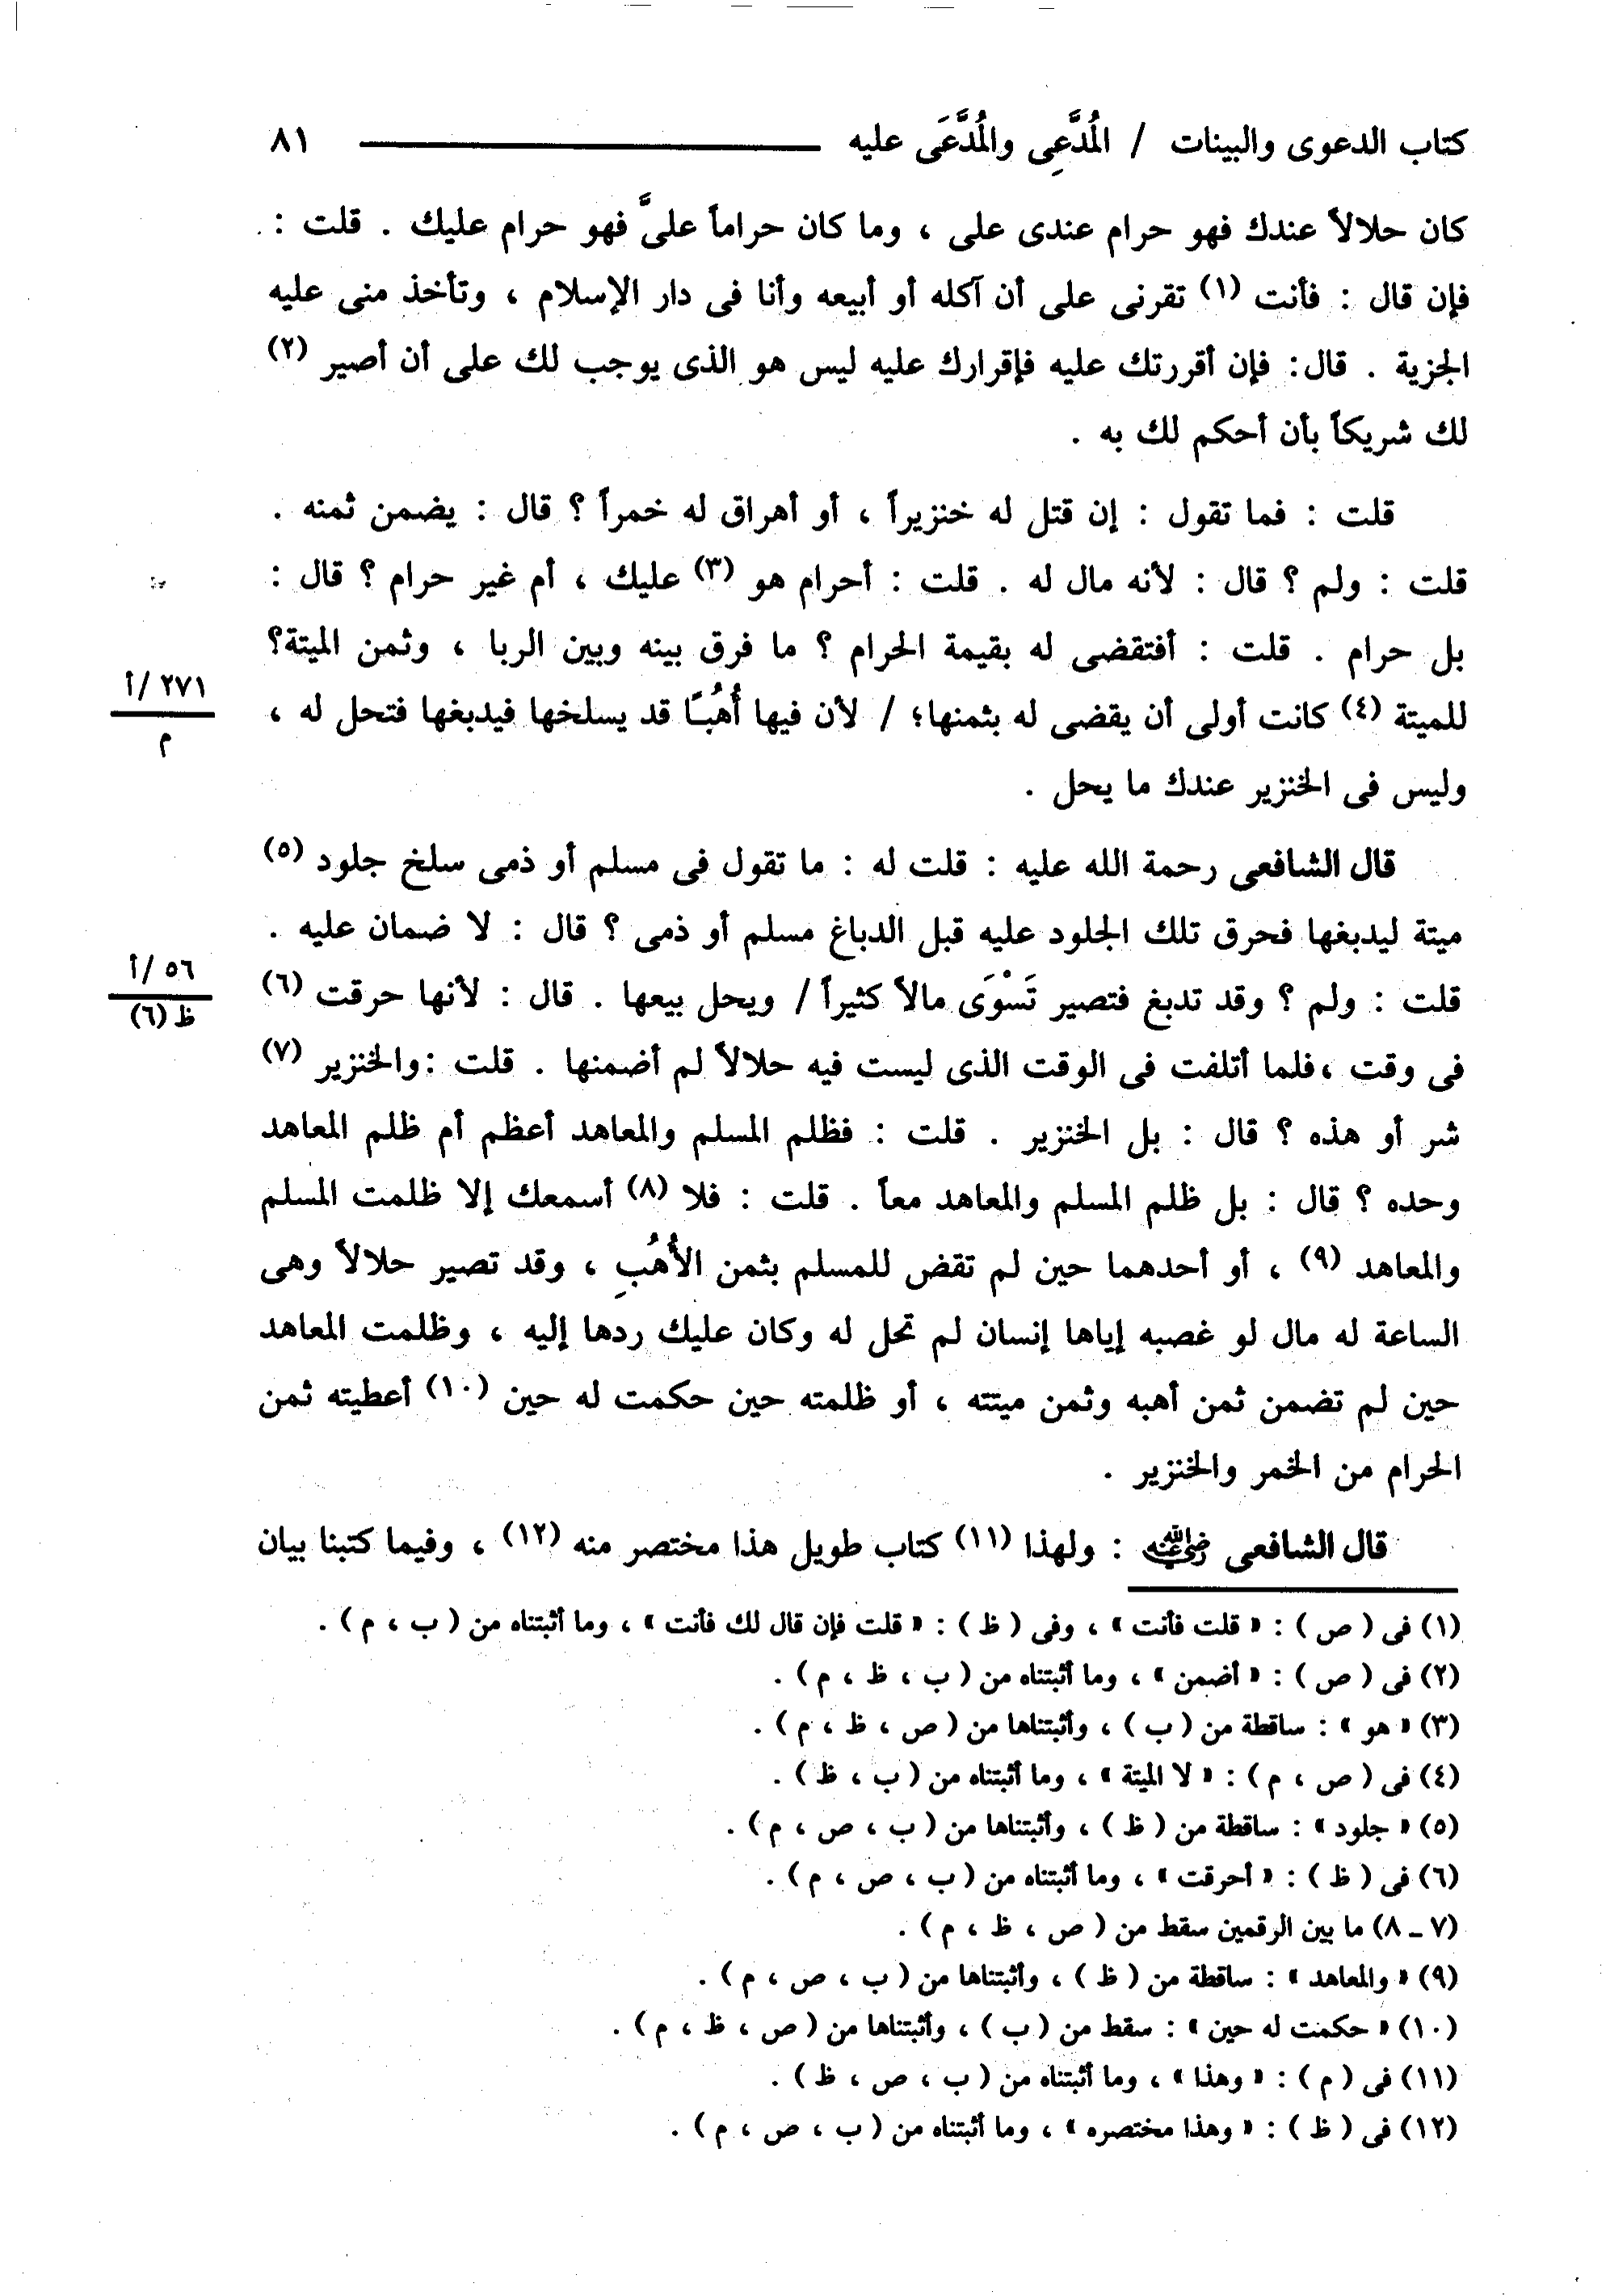 كتاب الدعوى والبينات / المُدَّعِى والمُدَّعَى عليه ٨١
كان حلالاً عندك فهو حرام عندى على ، وما كان حراماً علىَّ فهو حرام عليك . قلت :
فإن قال : فأنت (١) تقرنى على أن آكله أو أبيعه وأنا فى دار الإسلام ، وتأخذ منى عليه
الجزية . قال: فإن أقررتك عليه فإقرارك عليه ليس هو الذى يوجب لك على أن أصير (٢)
لك شريكاً بأن أحكم لك به .
قلت : فما تقول : إن قتل له خنزيراً ، أو أهراق له خمراً ؟ قال : يضمن ثمنه .
قلت : ولم ؟ قال : لأنه مال له . قلت : أحرام هو (٣) عليك ، أم غير حرام ؟ قال :
بل حرام . قلت : أفتقضى له بقيمة الحرام ؟ ما فرق بينه وبين الربا ، وثمن الميتة؟
للميتة (٤) كانت أولى أن يقضى له بثمنها؛ / لأن فيها أُهُبًا قد يسلخها فيدبغها فتحل له ،
٢٧١/أ
م
وليس فى الخنزير عندك ما يحل .
قال الشافعى رحمة الله عليه : قلت له : ما تقول فى مسلم أو ذمى سلخ جلود (٥)
ميتة ليدبغها فحرق تلك الجلود عليه قبل الدباغ مسلم أو ذمى ؟ قال : لا ضمان عليه .
قلت : ولم ؟ وقد تدبغ فتصير تَسْوَى مالاً كثيراً / ويحل بيعها . قال : لأنها حرقت (٦)
٥٦/أ
ظ (٦)
فى وقت ،فلما أتلفت فى الوقت الذى ليست فيه حلالاً لم أضمنها . قلت :والخنزير (٧)
شر أو هذه ؟ قال : بل الخنزير . قلت : فظلم المسلم والمعاهد أعظم أم ظلم المعاهد
وحده ؟ قال : بل ظلم المسلم والمعاهد معاً . قلت : فلا (٨) أسمعك إلا ظلمت المسلم
والمعاهد (٩) ، أو أحدهما حين لم تقض للمسلم بثمن الأُهُبِ ، وقد تصير حلالاً وهى
الساعة له مال لو غصبه إياها إنسان لم تحل له وكان عليك ردها إليه ، وظلمت المعاهد
حين لم تضمن ثمن أهبه وثمن ميتته ، أو ظلمته حين حكمت له حين (١٠) أعطيته ثمن
الحرام من الخمر والخنزير .
قال الشافعى رضي الله عنه : ولهذا (١١) كتاب طويل هذا مختصر منه (١٢) ، وفيما كتبنا بيان
(١) فى ( ص ) : « قلت فأنت » ، وفى ( ظ ) : « قلت فإن قال لك فأنت » ، وما أثبتناه من ( ب ، م ) .
(٢) فى ( ص ) : « أضمن » ، وما أثبتناه من ( ب ، ظ ، م ) .
(٣) « هو » : ساقطة من ( ب ) ، وأثبتناها من ( ص ، ظ ، م ) .
(٤) فى ( ص ، م ) : « لا الميتة » ، وما أثبتناه من ( ب ، ظ ) .
(٥) « جلود » : ساقطة من ( ظ ) ، وأثبتناها من ( ب ، ص ، م ) .
(٦) فى ( ظ ) : « أحرقت » ، وما أثبتناه من ( ب ، ص ، م ) .
(٧ ـ ٨) ما بين الرقمين سقط من ( ص ، ظ ، م ) .
(٩) « والمعاهد » : ساقطة من ( ظ ) ، وأثبتناها من ( ب ، ص ، م ) .
(١٠) « حكمت له حين » : سقط من ( ب ) ، وأثبتناها من ( ص ، ظ ، م ) .
(١١) فى ( م ) : « وهذا » ، وما أثبتناه من ( ب ، ص ، ظ ) .
(١٢) فى ( ظ ) : « وهذا مختصره » ، وما أثبتناه من ( ب ، ص ، م ) .